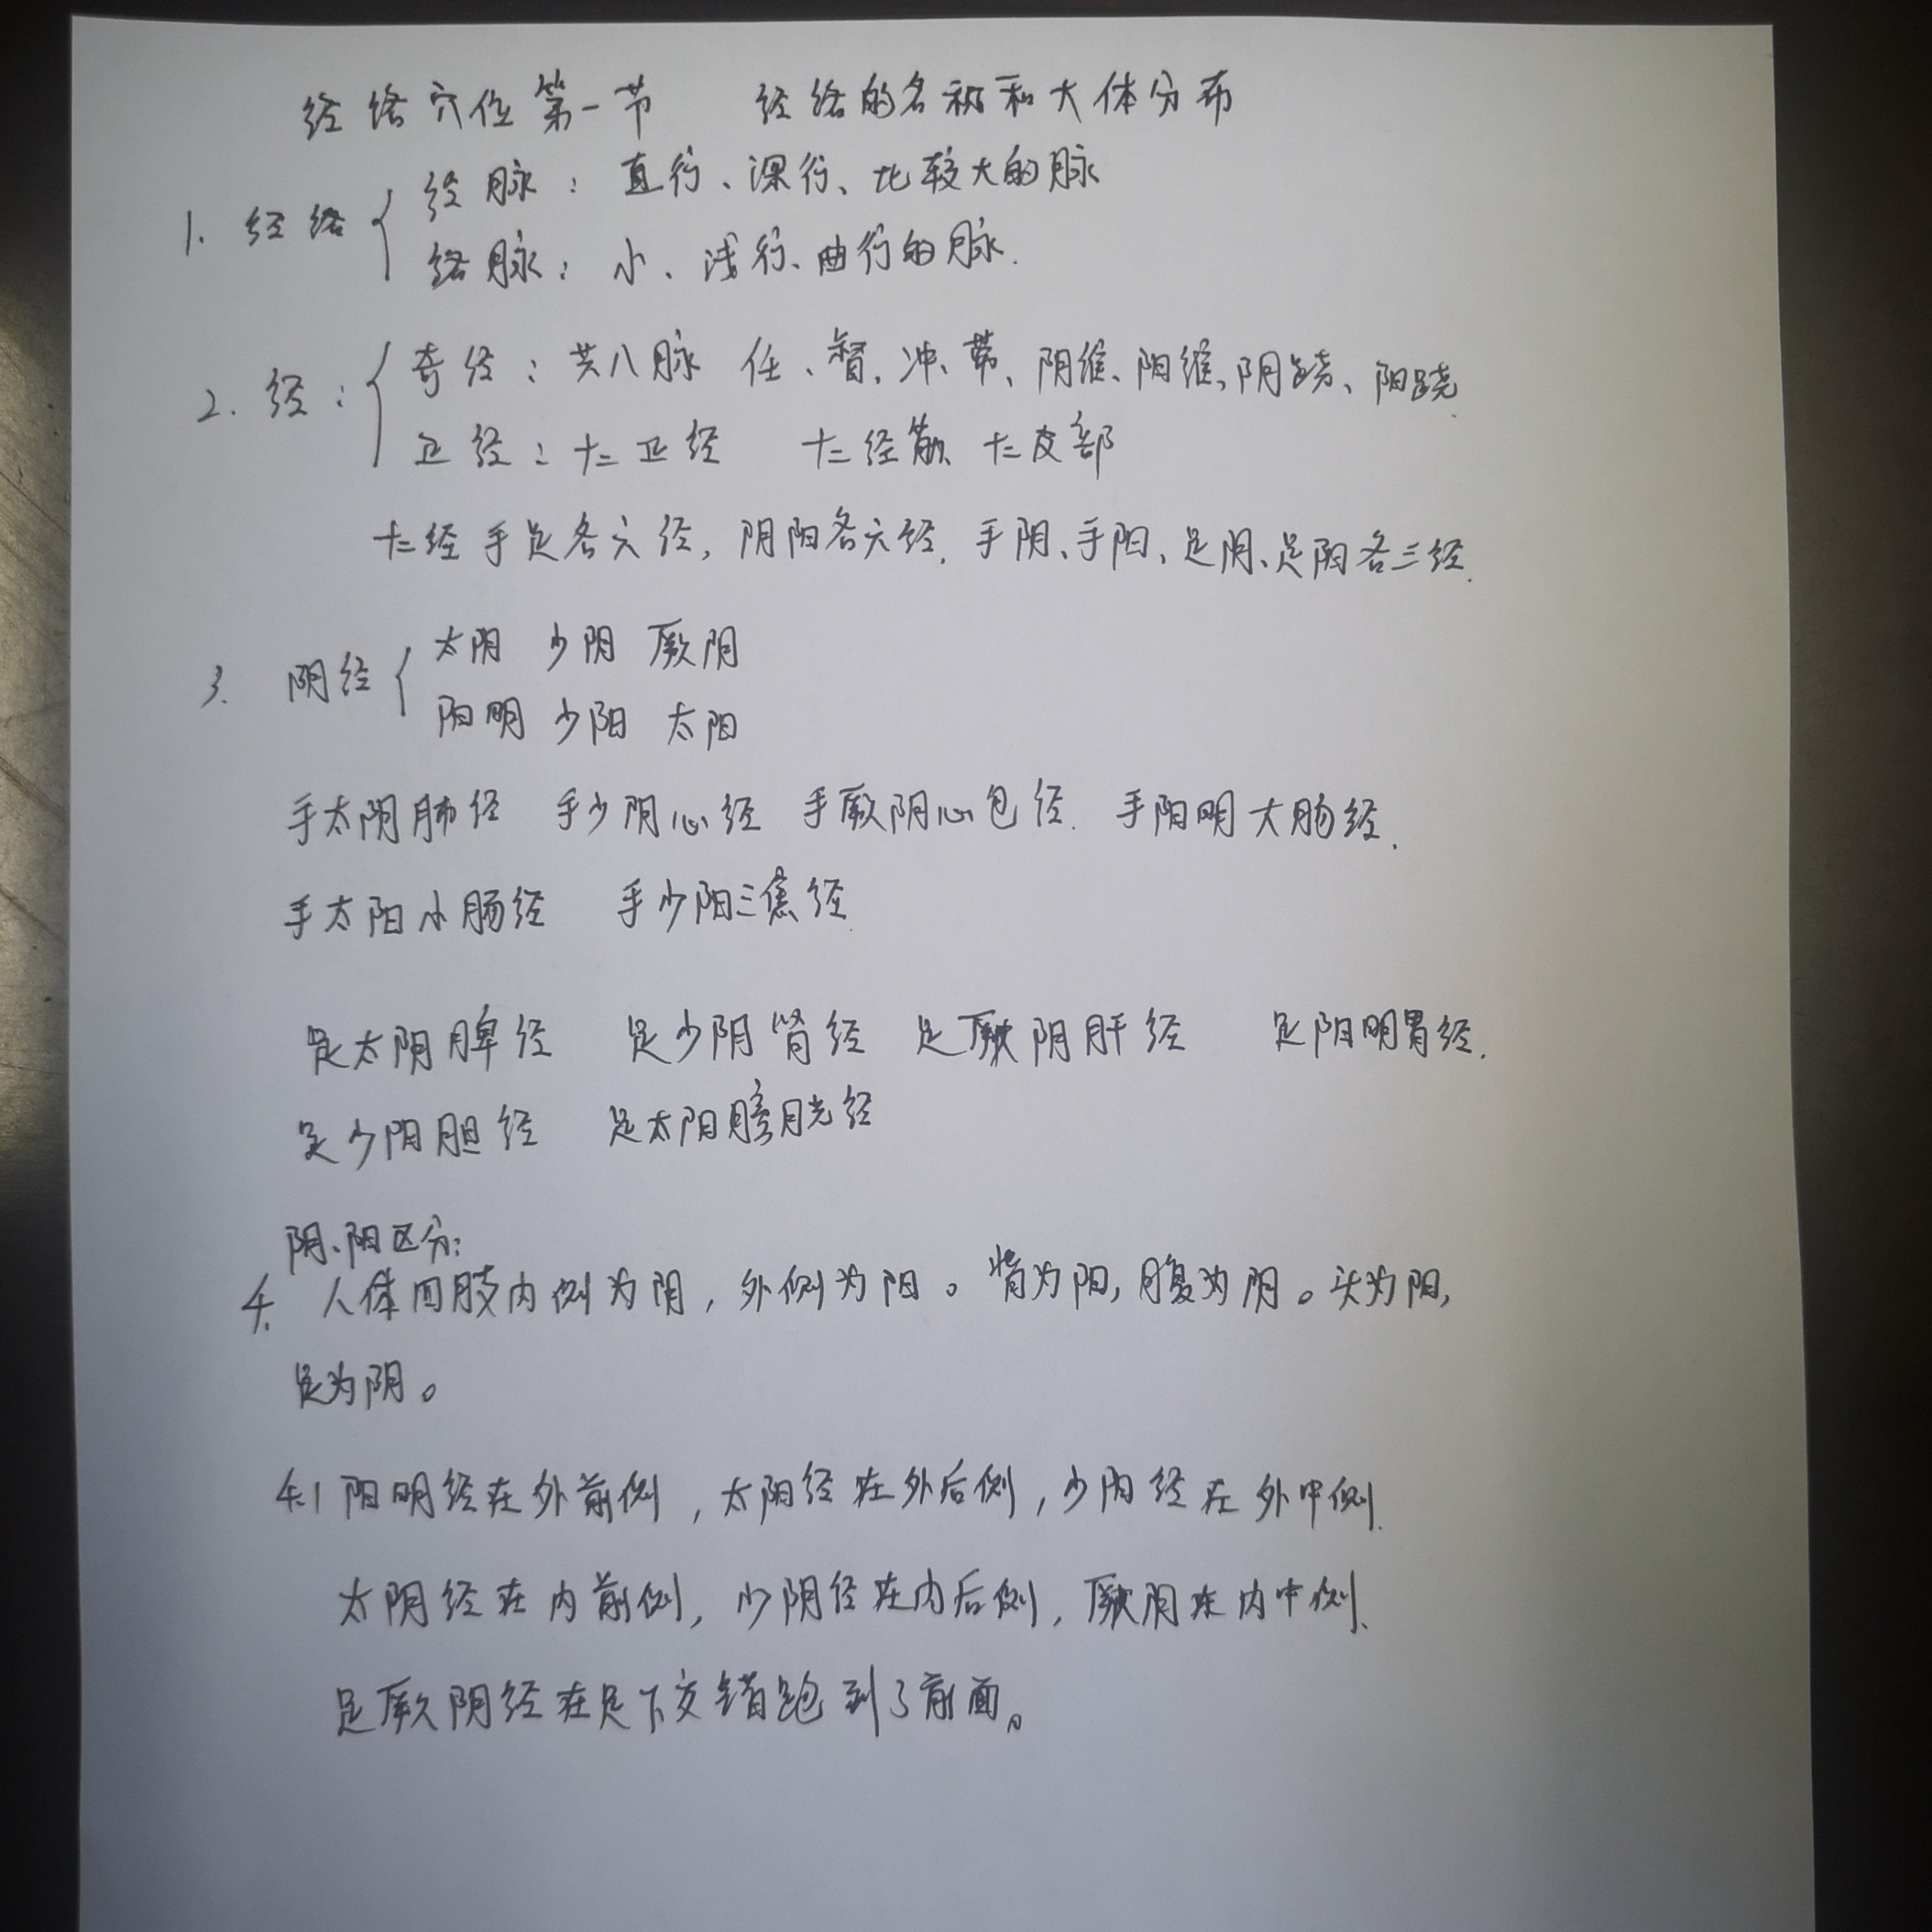 经络穴位第一节 经络的名称和大体分布
1. 经络 { 经脉：直行、深行、比较大的脉
络脉：小、浅行、曲行的脉.
2. 经：{ 奇经：共八脉 任、督、冲、带、阴维、阳维、阴跷、阳跷.
正经：十二正经 十二经筋 十二皮部
十二经手足各六经，阴阳各六经. 手阴、手阳、足阴、足阳各三经.
3. 阴经 { 太阴 少阴 厥阴
阳明 少阳 太阳
手太阴肺经 手少阴心经 手厥阴心包经. 手阳明大肠经.
手太阳小肠经 手少阳三焦经.
足太阴脾经 足少阴肾经 足厥阴肝经 足阳明胃经.
足少阴胆经 足太阳膀胱经
阴、阳区分：
4. 人体四肢内侧为阴，外侧为阳。背为阳，腹为阴。头为阳，
足为阴。
4.1 阳明经在外前侧，太阳经在外后侧，少阳经在外中侧.
太阴经在内前侧，少阴经在内后侧，厥阴在内中侧.
足厥阴经在足下交错跑到了前面。